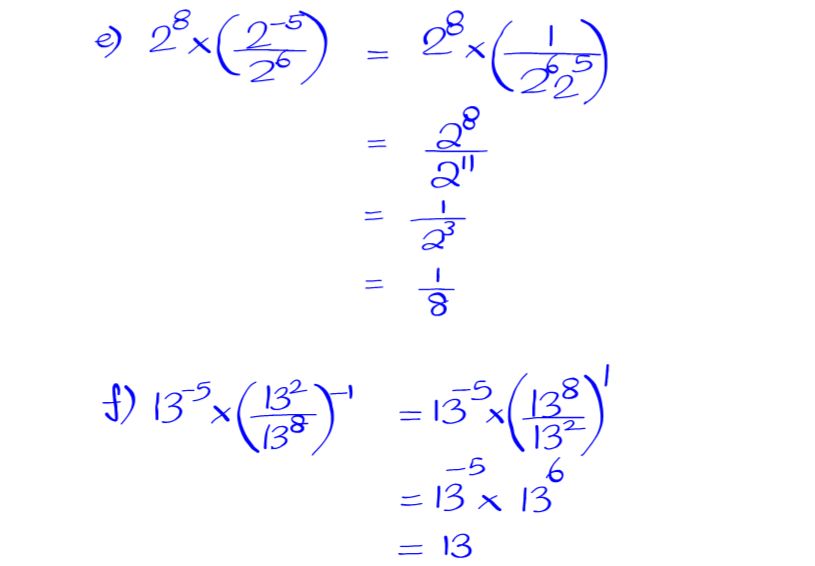 e) 2⁸ × (2⁻⁵/2⁶) = 2⁸ × (1/2⁶2⁵)
= 2⁸/2¹¹
= 1/2³
= 1/8
f) 13⁻⁵ × (13²/13⁸)⁻¹ = 13⁻⁵ × (13⁸/13²)¹
= 13⁻⁵ × 13⁶
= 13